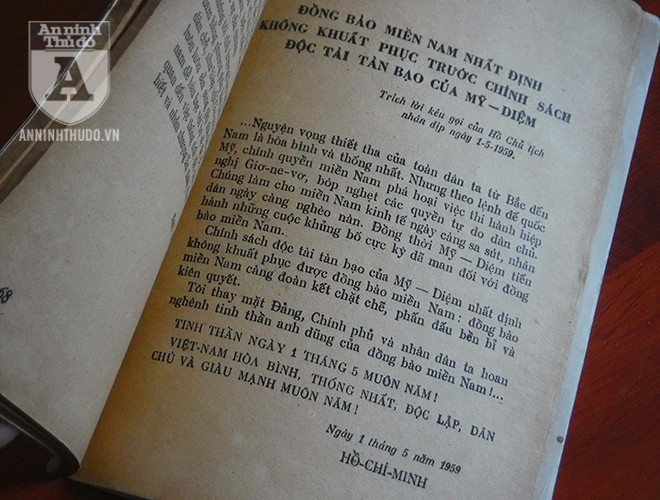 An ninh
Thủ đô
ANNINHTHUDO.VN
68
ĐỒNG BÀO MIỀN NAM NHẤT ĐỊNH
KHÔNG KHUẤT PHỤC TRƯỚC CHÍNH SÁCH
ĐỘC TÀI TÀN BẠO CỦA MỸ — DIỆM
Trích lời kêu gọi của Hồ Chủ tịch
nhân dịp ngày 1-5-1959.
...Nguyện vọng thiết tha của toàn dân ta từ Bắc đến
Nam là hòa bình và thống nhất. Nhưng theo lệnh đế quốc
Mỹ, chính quyền miền Nam phá hoại việc thi hành hiệp
nghị Giơ-ne-vơ, bóp nghẹt các quyền tự do dân chủ.
Chúng làm cho miền Nam kinh tế ngày càng sa sút, nhân
dân ngày càng nghèo nàn. Đồng thời Mỹ — Diệm tiến
hành những cuộc khủng bố cực kỳ dã man đối với đồng
bào miền Nam.
Chính sách độc tài tàn bạo của Mỹ — Diệm nhất định
không khuất phục được đồng bào miền Nam: đồng bào
miền Nam càng đoàn kết chặt chẽ, phấn đấu bền bỉ và
kiên quyết.
Tôi thay mặt Đảng, Chính phủ và nhân dân ta hoan
nghênh tinh thần anh dũng của đồng bào miền Nam!...
TINH THẦN NGÀY 1 THÁNG 5 MUÔN NĂM!
VIỆT-NAM HÒA BÌNH, THỐNG NHẤT, ĐỘC LẬP, DÂN
CHỦ VÀ GIÀU MẠNH MUÔN NĂM!
Ngày 1 tháng 5 năm 1959
HỒ-CHÍ-MINH